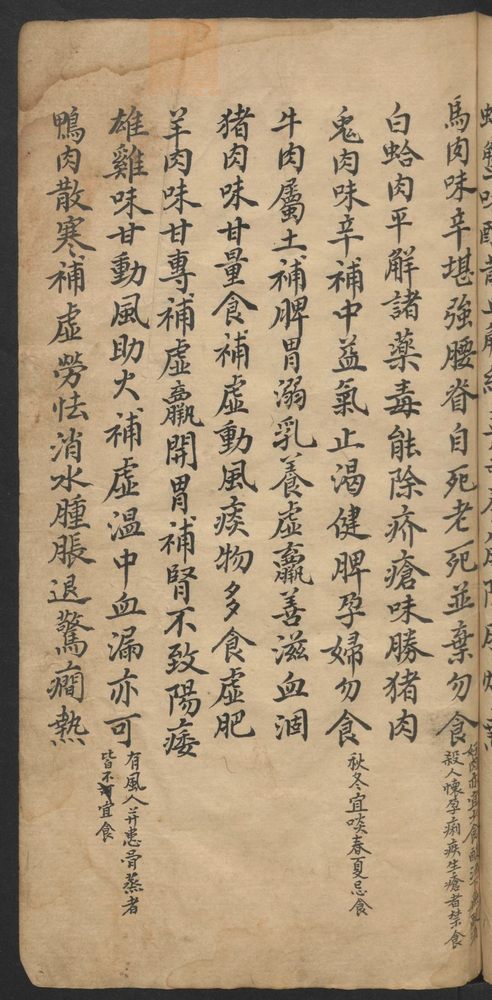 馬肉味辛堪強腰脊自死老死並棄勿食
好肉亦宜
殺人懷孕痢疾生瘡者禁食
白蛤肉平解諸藥毒能除疥瘡味勝猪肉
兎肉味辛補中益氣止渴健脾孕婦勿食
秋冬宜啖春夏忌食
牛肉屬土補脾胃溺乳養虛羸善滋血涸
猪肉味甘量食補虛動風痰物多食虛肥
羊肉味甘專補虛羸開胃補腎不致陽痿
雄雞味甘動風助火補虛溫中血漏亦可
有風人并患骨蒸者
皆不宜食
鴨肉散寒補虛勞怯消水腫脹退驚癇熱